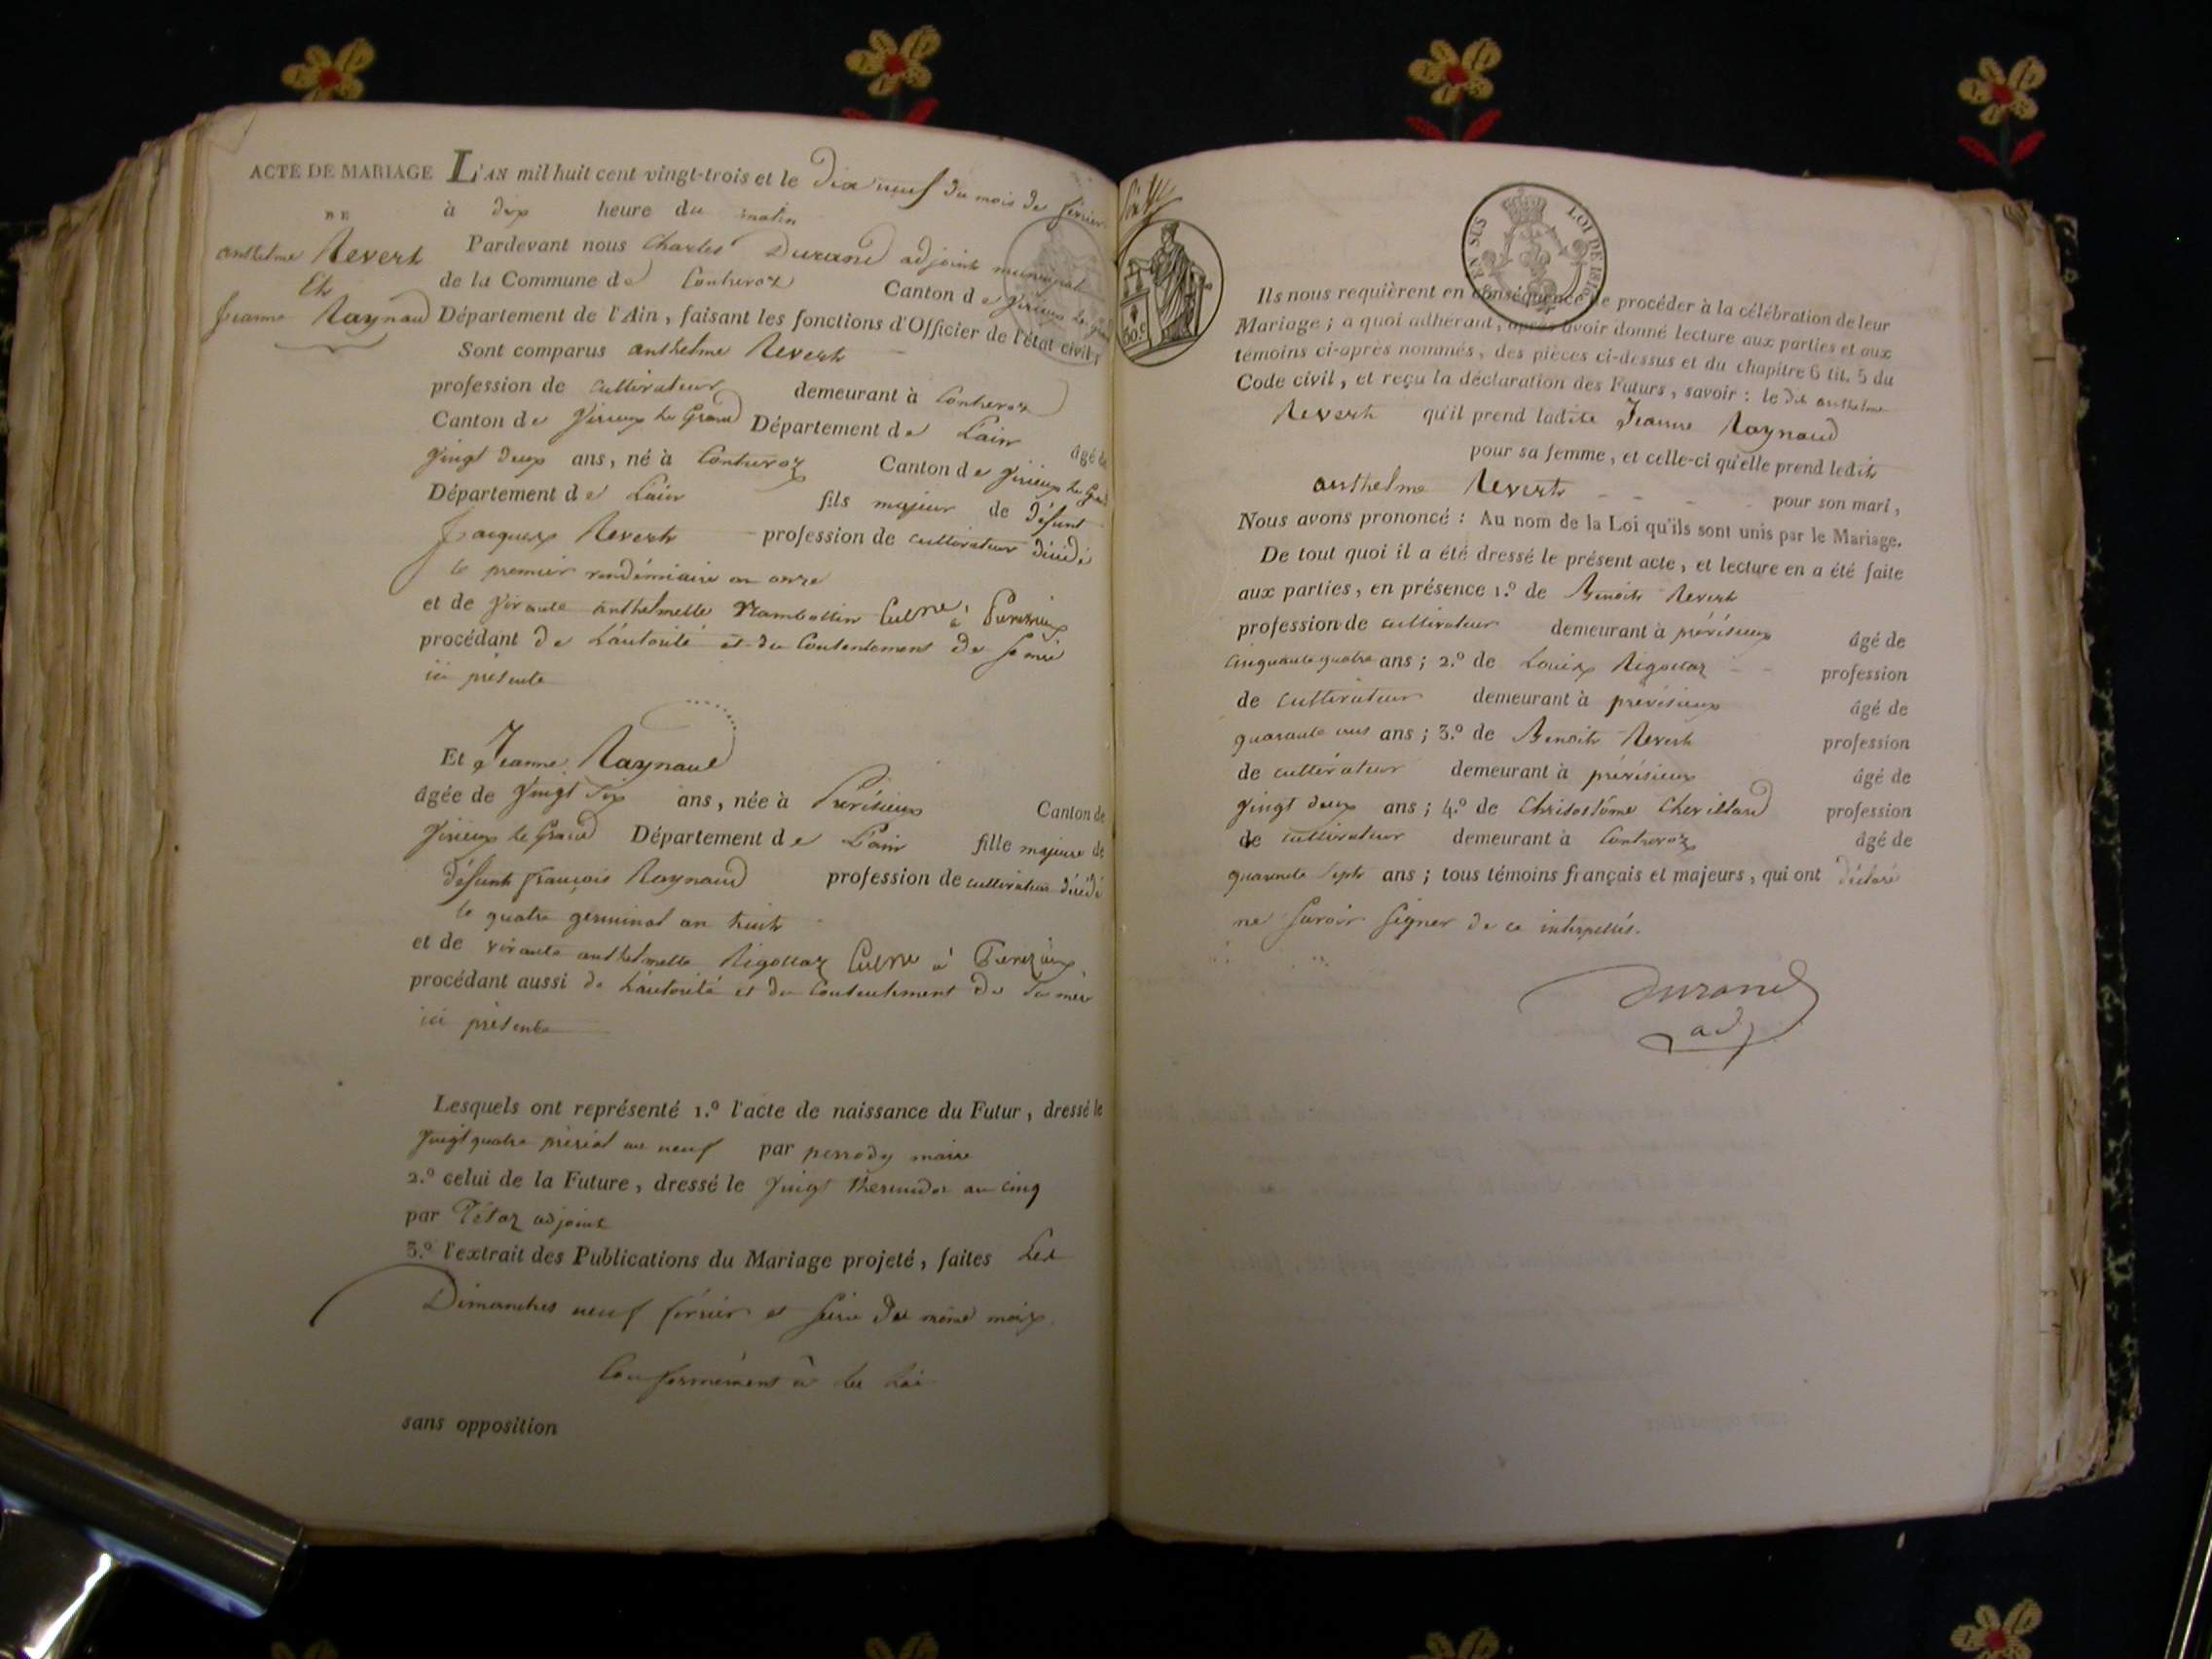 ACTE DE MARIAGE
DE
anthelme Revert
Et
Jeanne Raynaud
L'AN mil huit cent vingt-trois et le dix neuf du mois de février
à dix heure du matin
Pardevant nous Charles Durand adjoint municipal
de la Commune de Contrevoz Canton de Virieux le Grand
Département de l'Ain, faisant les fonctions d'Officier de l'état civil,
Sont comparus anthelme Revert
profession de cultivateur demeurant à Contrevoz
Canton de Virieux le Grand Département de L'ain âgé de
vingt deux ans, né à Contrevoz Canton de Virieux le Grand
Département de L'ain fils majeur de défunt
Jacques Revert profession de cultivateur décédé
le premier vendémiaire an onze
et de vivante anthelmette à
procédant de L'autorité et du Contentement de sa mère
ici présente
Et Jeanne Raynaud
âgée de vingt six ans, née à Prévésieux Canton de
Virieux le Grand Département de L'ain fille majeure de
défunt françois Raynaud profession de cultivateur décédé
le quatre germinal an huit
et de vivante anthelmette Rigollaz à
procédant aussi de L'autorité et du Contentement de sa mère
ici présente
Lesquels ont représenté 1.º l'acte de naissance du Futur, dressé le
vingt quatre prérial an neuf par perrody maire
2.º celui de la Future, dressé le vingt thermidor an cinq
par Tétaz adjoint
3.º l'extrait des Publications du Mariage projeté, faites Les
Dimanches neuf février et seize du même moix
Conformément à la Loi
sans opposition
50 c
EN SUS
LOI DE 1816
Ils nous requièrent en conséquence de procéder à la célébration de leur
Mariage ; à quoi adhérant, après avoir donné lecture aux parties et aux
témoins ci-après nommés, des pièces ci-dessus et du chapitre 6 tit. 5 du
Code civil, et reçu la déclaration des Futurs, savoir : le dit anthelme
Revert qu'il prend ladite Jeanne Raynaud
pour sa femme, et celle-ci qu'elle prend ledit
anthelme Revert pour son mari,
Nous avons prononcé : Au nom de la Loi qu'ils sont unis par le Mariage.
De tout quoi il a été dressé le présent acte, et lecture en a été faite
aux parties, en présence 1.º de Benoit Revert
profession de cultivateur demeurant à prévésieux âgé de
cinquante quatre ans ; 2.º de Louix Rigollaz profession
de cultivateur demeurant à prévésieux âgé de
quarante ans ; 3.º de Benoit Revert profession
de cultivateur demeurant à prévésieux âgé de
vingt deux ans ; 4.º de Chrisostôme Chevillard profession
de cultivateur demeurant à Contrevoz âgé de
quarante sept ans ; tous témoins français et majeurs, qui ont déclaré
ne savoir signer de ce interpellés.
Durand
adj